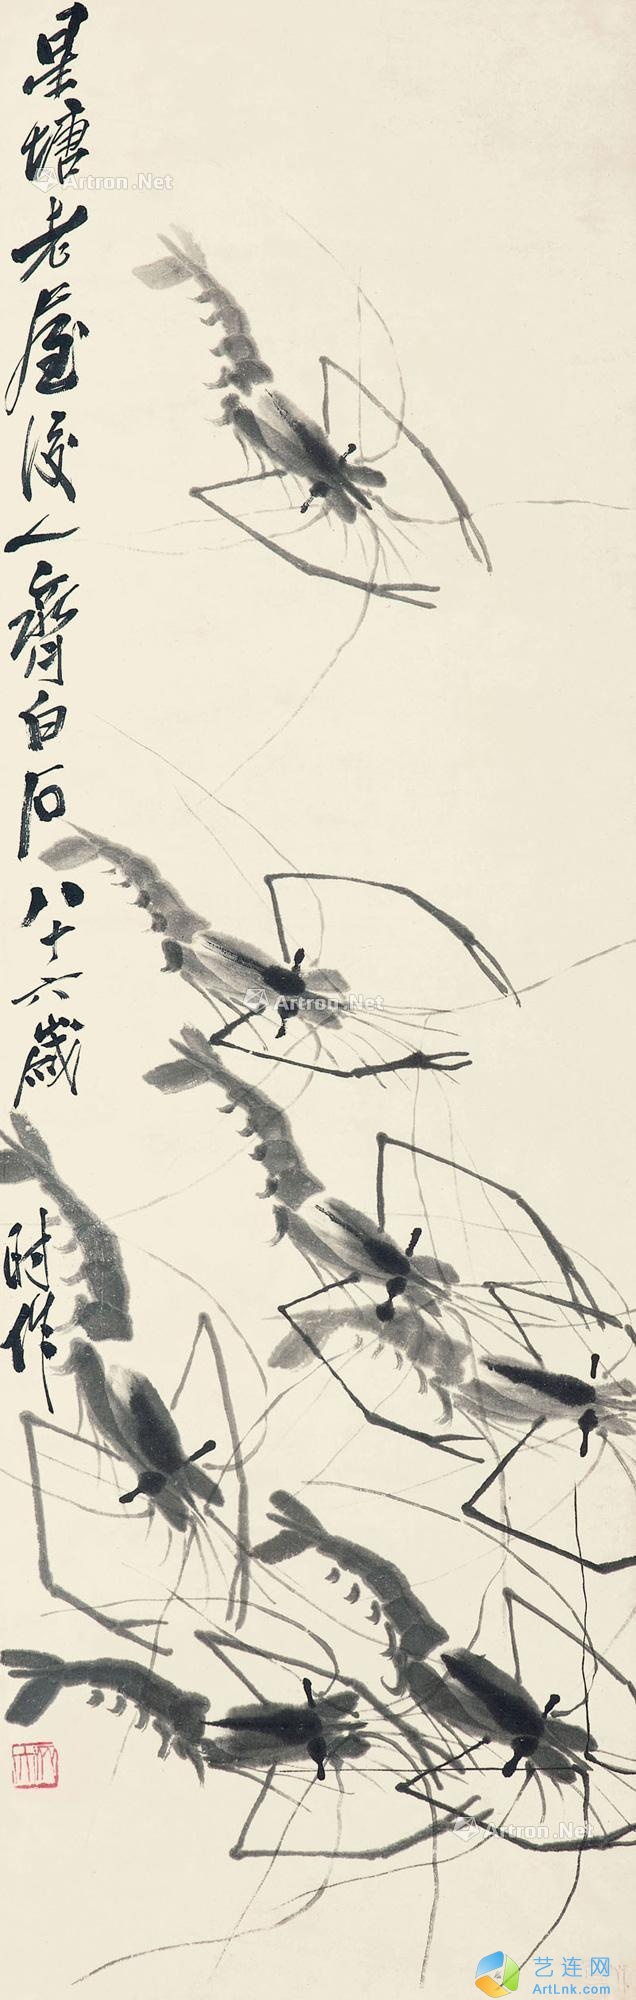 星塘老屋后人齊白石八十六歲
时作
Artron.Net
Artron.Net
Artron.Net
艺连网
ArtLnk.com